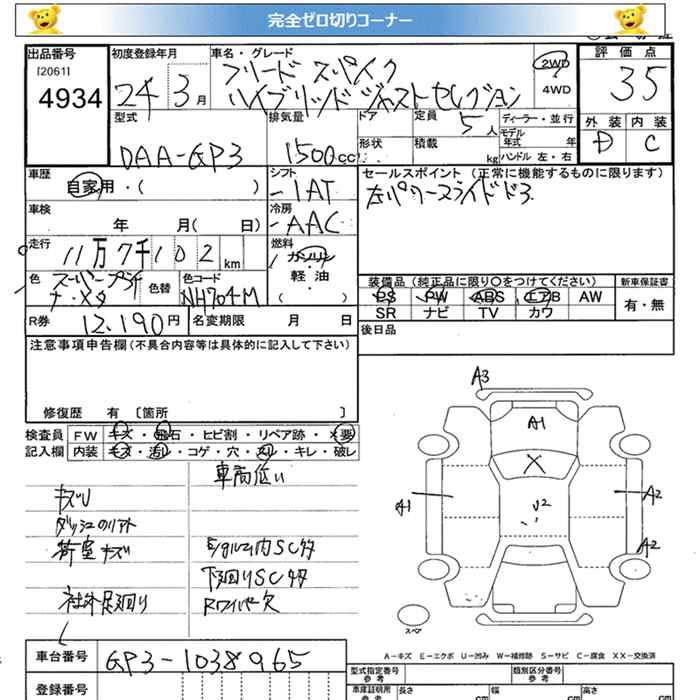 完全ゼロ切りコーナー
出品番号
[2061]
4934
初度登録年月
24 3月
車名・グレード
フリード スパイク
ハイブリッド ジャストセレクション
2WD
4WD
評価点
35
外装 内装
D C
型式
DAA-GP3
排気量
1500cc
ドア
形状
定員
5人
積載
kg
ディーラー・並行
モデル年式 年
ハンドル 左・右
車歴
自家用・( )
シフト
IAT
セールスポイント (正常に機能するものに限ります)
左パワースライドドア
車検
年 月( 日)
冷房
AAC
走行
11万7千102km
燃料
ガソリン
軽・油
( )
色
スーパープラチナ・メタ
色替
色コード
NH704M
装備品 (純正品に限り○をつけてください)
PS PW ABS エアB AW
SR ナビ TV カワ
新車保証書
有・無
R券 12,190円
名変期限 月 日
後日品
注意事項申告欄 (不具合内容等は具体的に記入して下さい)
修復歴 有 〔箇所 〕
検査員
記入欄
FW キズ・飛石・ヒビ割・リペア跡・×要
内装 キズ・汚れ・コゲ・穴・スレ・キレ・破レ
車高低い
キズU
荷室キズ
社外足廻り
下廻りSC多
Rワイパー欠
A3
A1
A1
U2
A2
A2
スペア
A-キズ E-エクボ U-凹み W-補修跡 S-サビ C-腐食 XX-交換済
車台番号
GP3-1038965
登録番号
型式指定番号
参考
類別区分番号
参考
車庫証明用
参考
長さ cm
幅 cm
高さ cm